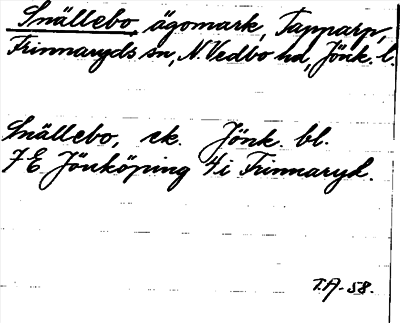 Snällebo, ägomark, Tapparp,
Frinnaryds sn, N. Vedbo hd, Jönk. l.
Snällebo, ek. Jönk. bl.
7 E Jönköping 4i Frinnaryd.
T.A. -58.